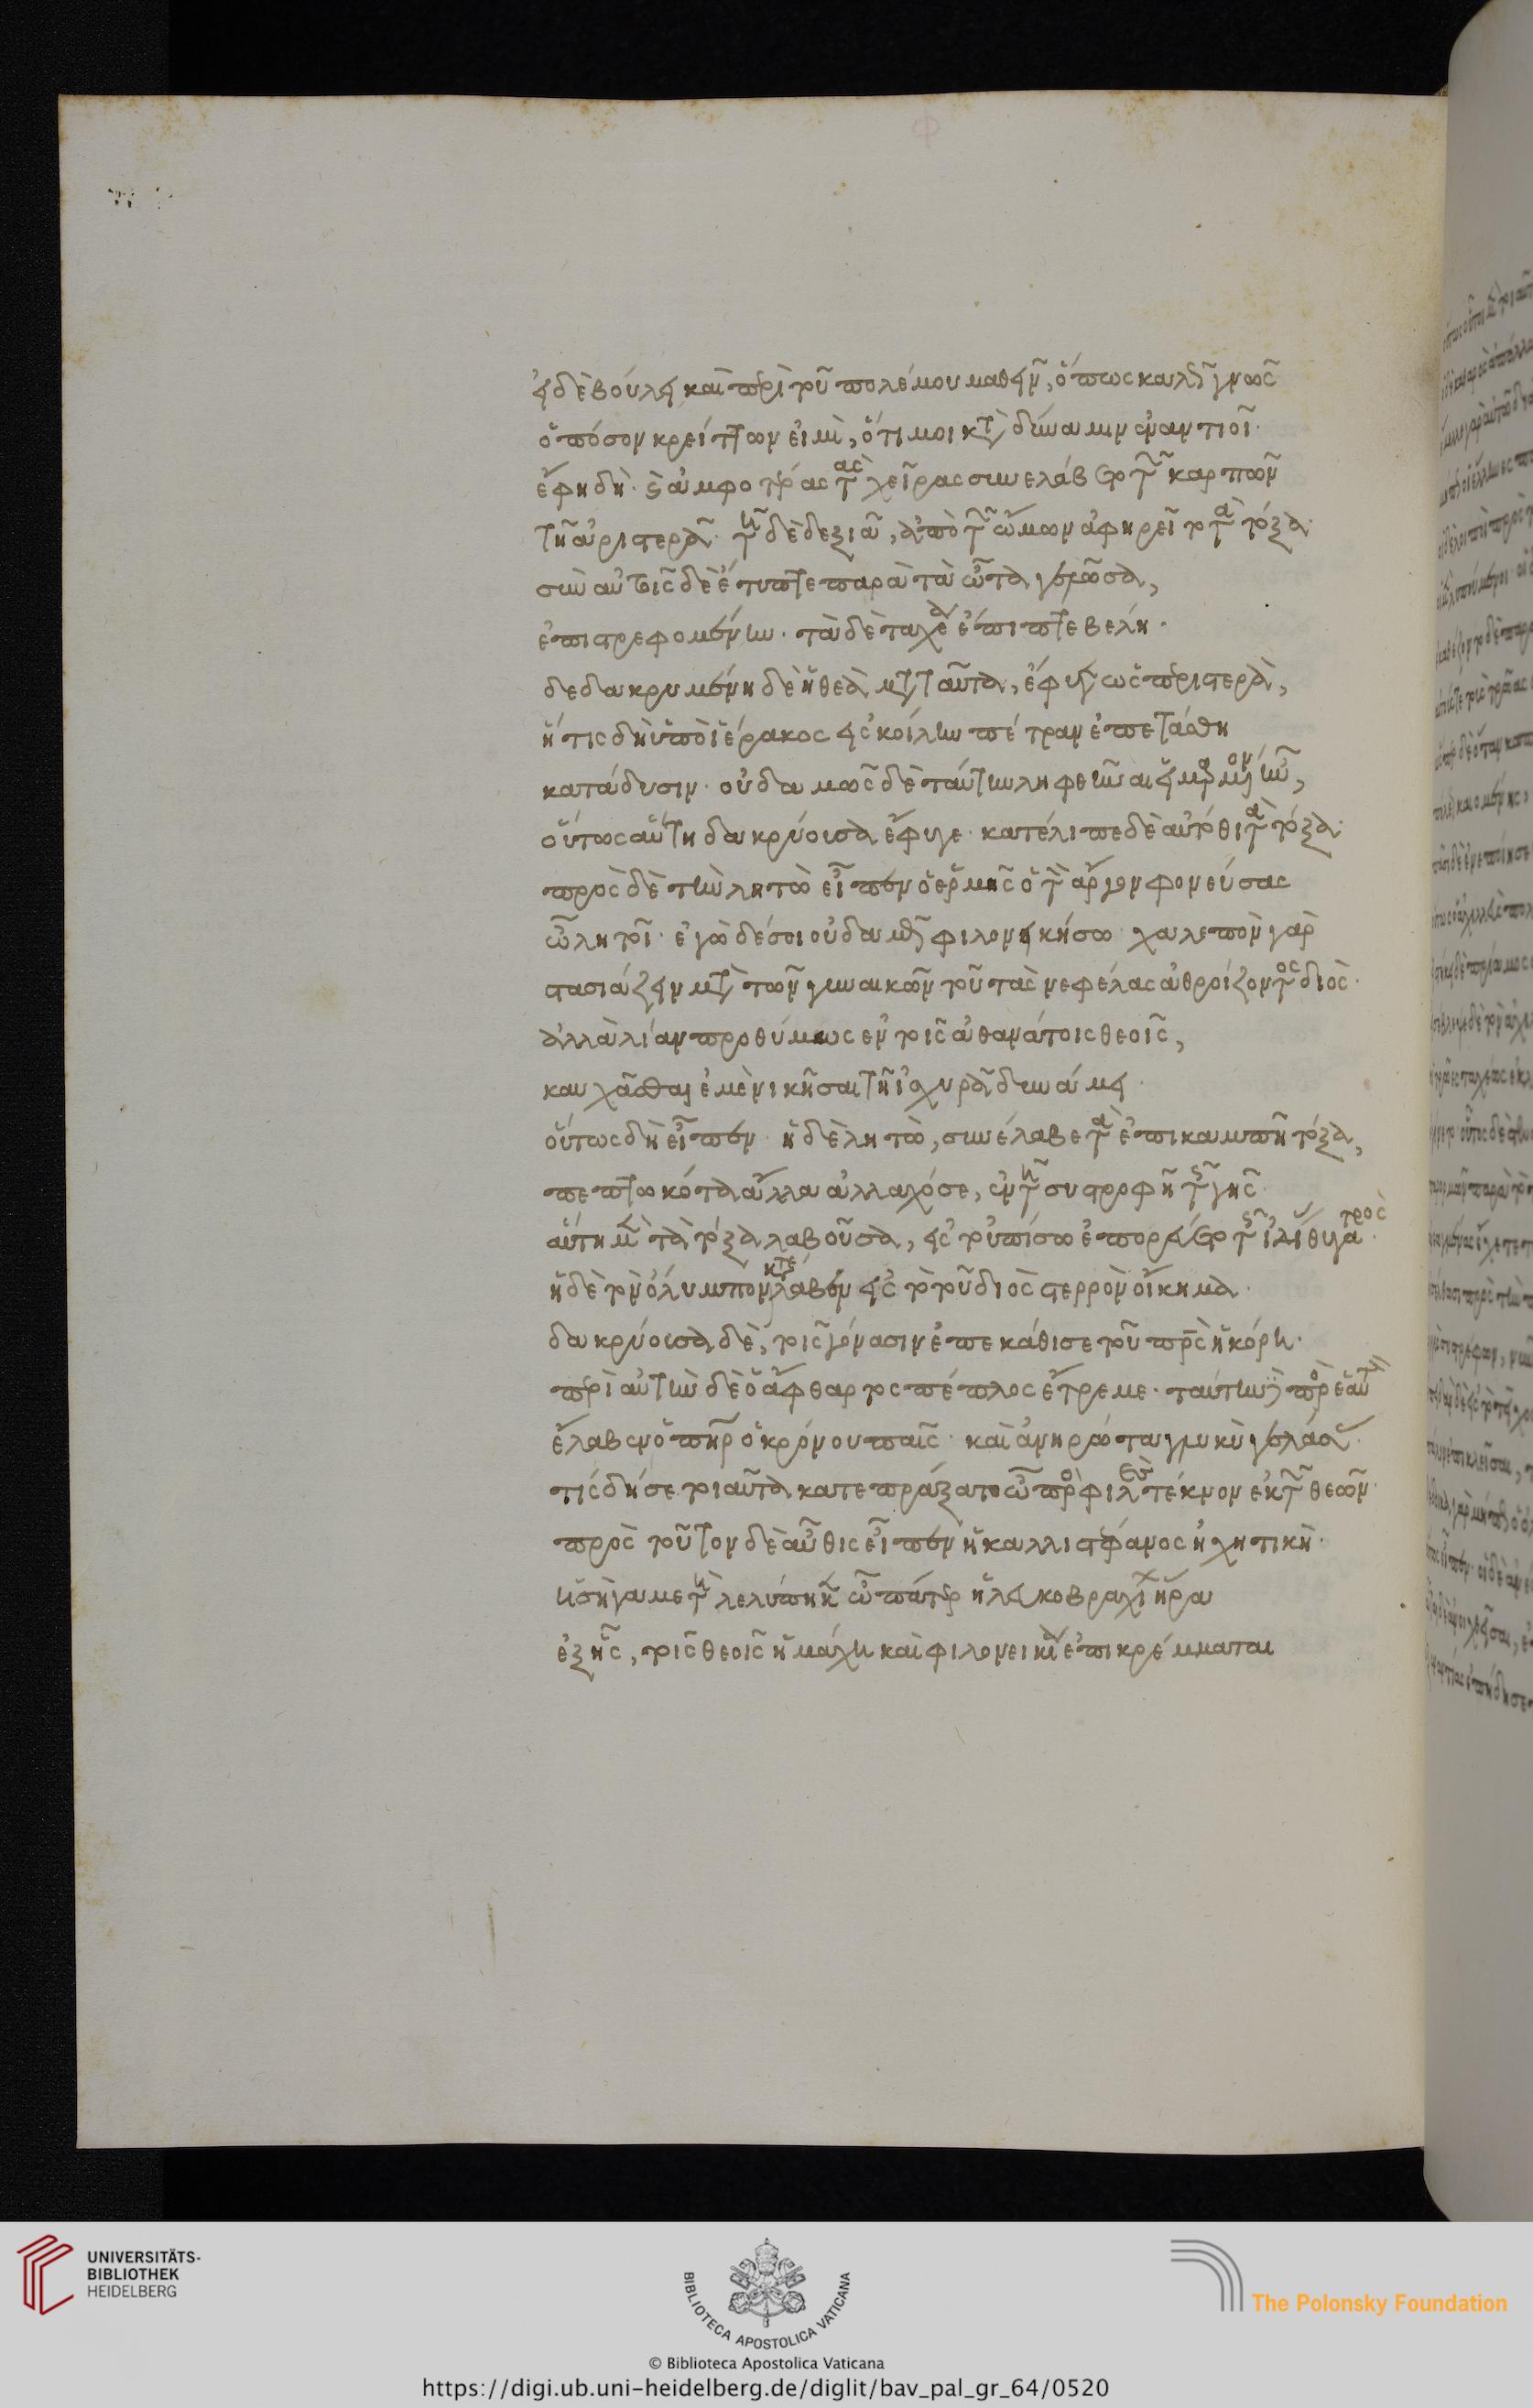 εἰ δὲ βούλει καὶ περὶ τοῦ πολέμου μαθεῖν, ὅπως καλῶς γνῷς
ὁπόσον κρείττων εἰμὶ, ὅτι μοι κατὰ δύναμιν ἐναντιοῖ·
ἔφη δὴ· καὶ ἀμφοτέρας τὰς χεῖρας συνελάβετο τῶν καρπῶν
τῆ ἀριστερᾶ· τῆ δὲ δεξιᾶ, ἀπὸ τῶν ὤμων ἀφηρεῖτο τὰ τόξα·
σὺν αὐτοῖς δὲ ἔτυπτε παρὰ τὰ ὦτα γελῶσα,
ἐπιστρεφομένην· τὰ δὲ ταχέα ἔπιπτε βέλη·
δεδακρυμένη δὲ ἡ θεὰ μετὰ ταῦτα, ἔφυγεν ὡς περιστερὰ,
ἥτις δὴ ὑπὸ ἱέρακος εἰς κοίλην πέτραν ἐπετάσθη
κατάδυσιν· οὐδαμῶς δὲ ταύτην ληφθῆναι εἱμαρμένον ἦν,
οὕτως αὕτη δακρύουσα ἔφυγε· κατέλιπε δὲ αὐτόθι τὰ τόξα·
πρὸς δὲ τὴν λητὼ εἶπεν ὁ ἑρμῆς ὁ τὸν ἄργον φονεύσας
ὦ λητοῖ· ἐγὼ δέ σοι οὐδαμῶς φιλονεικήσω· χαλεπὸν γὰρ
στασιάζειν μετὰ τῶν γυναικῶν τοῦ τὰς νεφέλας ἀθροίζοντος διὸς·
ἀλλὰ λίαν προθύμως ἐν τοῖς ἀθανάτοις θεοῖς,
καυχᾶσθαι ἐμὲ νικῆσαι τῆ ἰσχυρᾶ δυνάμει·
οὕτως δὴ εἶπεν· ἡ δὲ λητὼ, συνέλαβε τὰ ἐπικαμπῆ τόξα,
πεπτωκότα ἄλλα ἀλλαχόσε, ἐν τῆ συστροφῆ τῆς γῆς·
αὕτη μὲν τὰ τόξα λαβοῦσα, εἰς τοὐπίσω ἐπορεύετο τῆς θυγατρὸς·
ἡ δὲ τὸν ὄλυμπον κατέλαβεν εἰς τὸ τοῦ διὸς στερρὸν οἴκημα·
δακρύουσα δὲ, τοῖς γόνασιν ἐπεκάθισε τοῦ πατρὸς ἡ κόρη·
περὶ αὐτὴν δὲ ὁ ἄφθαρτος πέπλος ἔτρεμε· ταύτην δὲ πρὸς ἑαυτὸν
ἔλαβεν ὁ πατὴρ ὁ κρόνου παῖς· καὶ ἀνηρώτα γλυκὺ γελάσας·
τίς δή σε τοιαῦτα κατεπράξατο ὦ προσφιλὲς τέκνον ἐκ τῶν θεῶν·
πρὸς τοῦτον δὲ αὖθις εἶπεν ἡ καλλιστέφανος ἠχητικὴ·
ἡ σὴ γαμετὴ λελύπηκεν ὦ πάτερ ἡ λευκοβραχίων ἥρα
ἐξ ἧς, τοῖς θεοῖς ἡ μάχη καὶ φιλονεικία ἐπικρέμμαται
UNIVERSITÄTS-
BIBLIOTHEK
HEIDELBERG
BIBLIOTECA APOSTOLICA VATICANA
The Polonsky Foundation
© Biblioteca Apostolica Vaticana
https://digi.ub.uni-heidelberg.de/diglit/bav_pal_gr_64/0520